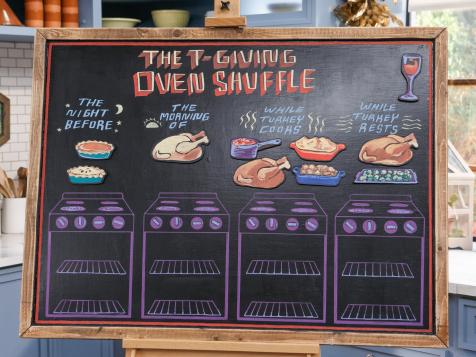 THE T-GIVING
OVEN SHUFFLE
THE
NIGHT
BEFORE
THE
MORNING
OF
WHILE
TURKEY
COOKS
WHILE
TURKEY
RESTS